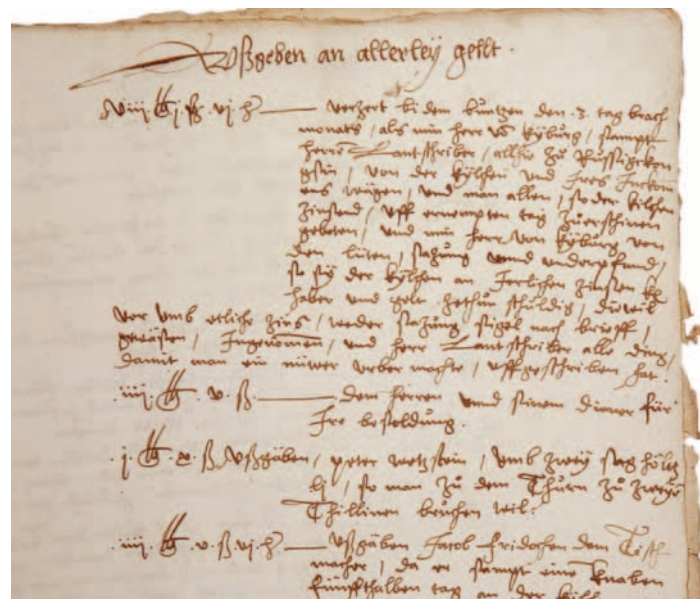 Vßgeben an allerley gellt.
viij. lb j. ß. vj. hlr — verzert bi dem Cuntzen den .3. tag brach
monats / als min herr vō kyburg / sampt
herrē Lantschriber / allhie zů Russigkon
gsin / von der kylchen und Jrers Jnkom
ens wägen / und man allen / so der kilchen
zinsend / uff ernempten tag zůerschinen
gebeten / und min herr von kyburg von
den lüten / satzung unnd underpfand /
so sÿ der kylchen an Jerlichen zinsen
haber und gelt zethůn schuldig / diewil
vor umb etliche zins / weder satzung sigel noch brieff /
gewäsen / Jngenomen / und herr Lantschriber alle ding /
damit man ein nüwer urber machte / uffgeschriben hat.
iiij. lb. v. ß. — dem herren unnd sinem diener für
Jre besoldung.
j. lb. x. ß Vßgäben / peter wetzstein / umb zweÿ sag höltz
li / so man zů dem Thurn zů zweÿē
Thillinen bruchen wil.
iiij. lb. v. ß vj. hlr — Vßgäben Jacob fridosen dem Tisch
macher / da er sampt einē knaben
fünffthalben tag an der kill